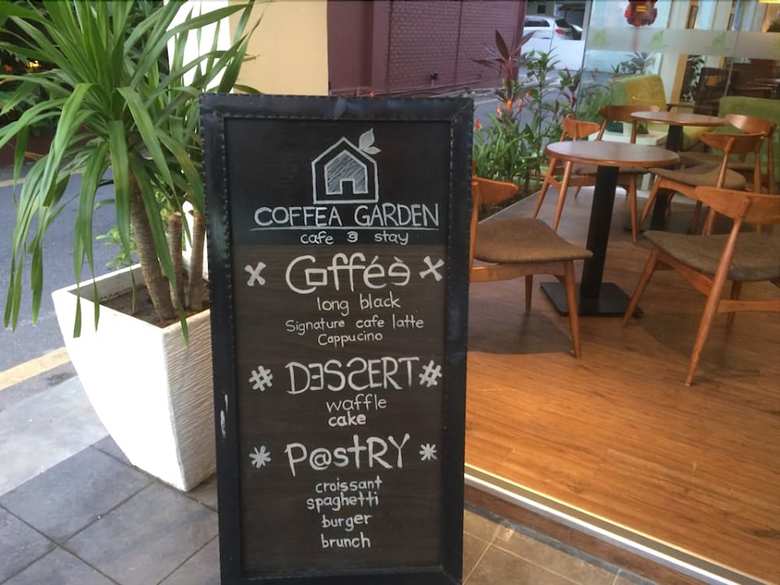 COFFEA GARDEN
cafe & stay
x Cofféè x
long black
Signature cafe latte
Cappucino
# DESSERT #
waffle
cake
* P@stRY *
croissant
spaghetti
burger
brunch